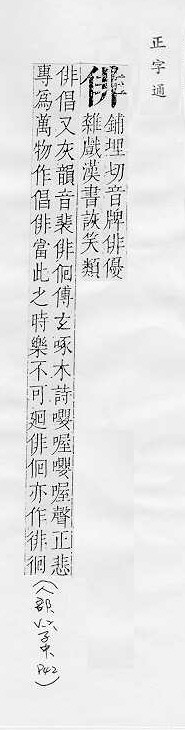 正字通
俳
鋪埋切音牌俳優
雜戲漢書詼笑類
俳倡又灰韻音裴俳佪傅玄啄木詩嚶喔嚶喔聲正悲
專爲萬物作倡俳當此之時樂不可廻俳佪亦作徘徊
(人部 P42)